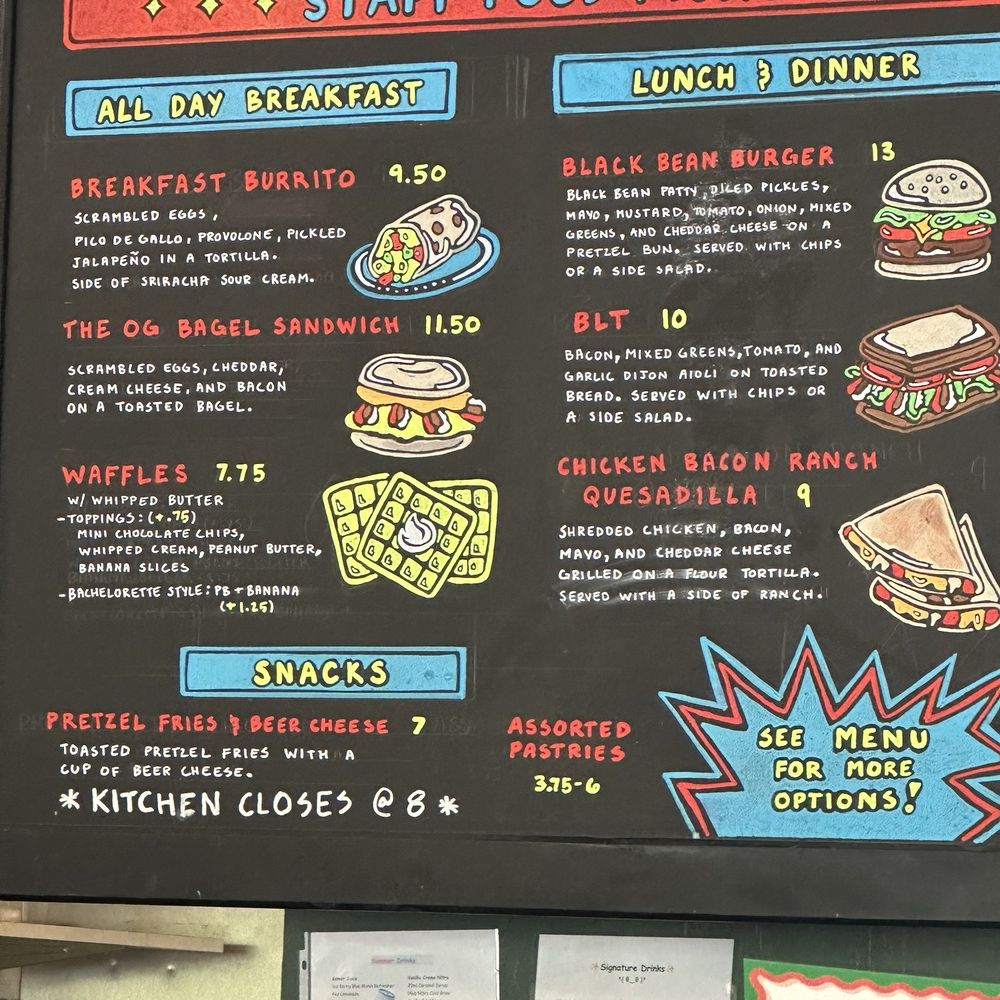 STAFF FOOD
ALL DAY BREAKFAST
BREAKFAST BURRITO 9.50
SCRAMBLED EGGS,
PICO DE GALLO, PROVOLONE, PICKLED
JALAPEÑO IN A TORTILLA.
SIDE OF SRIRACHA SOUR CREAM.
THE OG BAGEL SANDWICH 11.50
SCRAMBLED EGGS, CHEDDAR,
CREAM CHEESE, AND BACON
ON A TOASTED BAGEL.
WAFFLES 7.75
W/ WHIPPED BUTTER
-TOPPINGS: (+.75)
MINI CHOCOLATE CHIPS,
WHIPPED CREAM, PEANUT BUTTER,
BANANA SLICES
-BACHELORETTE STYLE: PB + BANANA
(+1.25)
LUNCH & DINNER
BLACK BEAN BURGER 13
BLACK BEAN PATTY, DICED PICKLES,
MAYO, MUSTARD, TOMATO, ONION, MIXED
GREENS, AND CHEDDAR CHEESE ON A
PRETZEL BUN. SERVED WITH CHIPS
OR A SIDE SALAD.
BLT 10
BACON, MIXED GREENS, TOMATO, AND
GARLIC DIJON AIOLI ON TOASTED
BREAD. SERVED WITH CHIPS OR
A SIDE SALAD.
CHICKEN BACON RANCH
QUESADILLA 9
SHREDDED CHICKEN, BACON,
MAYO, AND CHEDDAR CHEESE
GRILLED ON A FLOUR TORTILLA.
SERVED WITH A SIDE OF RANCH.
SNACKS
PRETZEL FRIES & BEER CHEESE 7
TOASTED PRETZEL FRIES WITH A
CUP OF BEER CHEESE.
*KITCHEN CLOSES @ 8*
ASSORTED
PASTRIES
3.75-6
SEE MENU
FOR MORE
OPTIONS!
Summer Drinks
Signature Drinks